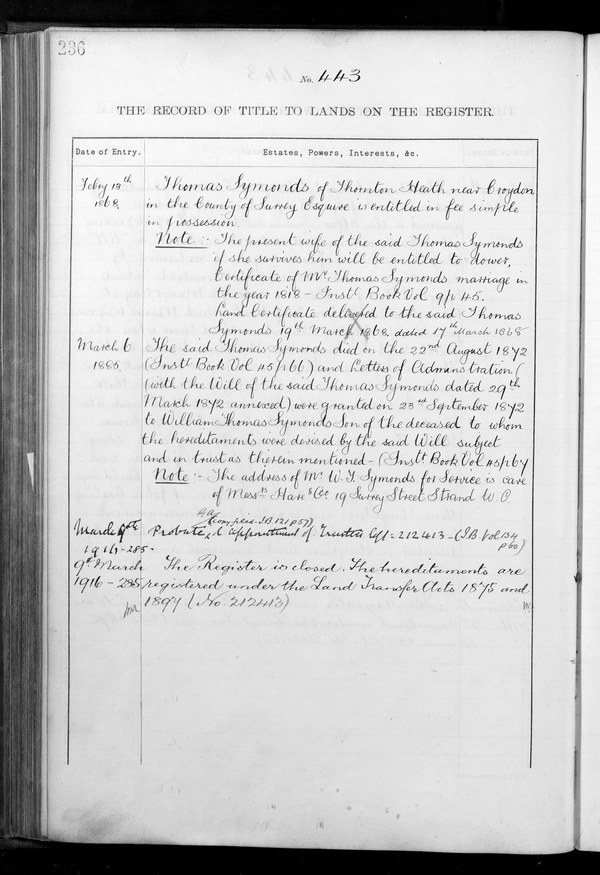 236
No. 443
THE RECORD OF TITLE TO LANDS ON THE REGISTER.
Date of Entry.
Estates, Powers, Interests, &c.
Feby 13th
1868.
Thomas Symonds of Thornton Heath near Croydon
in the County of Surrey Esquire is entitled in fee simple
in possession.
Note :- The present wife of the said Thomas Symonds
if she survives him will be entitled to dower,
Certificate of Mr. Thomas Symonds marriage in
the year 1818 - Instt. Book Vol 9/p 45.
Land Certificate delivered to the said Thomas
Symonds 19th March 1868. dated 17th March 1868
March 6
1885
The said Thomas Symonds died on the 22nd August 1872
(Instt Book Vol 45/p66) and Letters of Administration (
(with the Will of the said Thomas Symonds dated 29th
March 1872 annexed) were granted on 23rd September 1872
to William Thomas Symonds Son of the deceased to whom
the hereditaments were devised by the said Will subject
and in trust as therein mentioned - (Instt Book Vol 45/p67
Note :- The address of Mr W. T. Symonds for Service is care
of Messrs Hare & Co 19 Surrey Street Strand W.C.
(Copies I.B. 121 p57)
March 9th
1916 - 285 -
Probate & appointment of Trustees left = 212413 - (I.B. Vol 134
p 60)
9th March
1916 - 285
The Register is closed. The hereditaments are
registered under the Land Transfer Acts 1875 and
1897 (No. 212413)